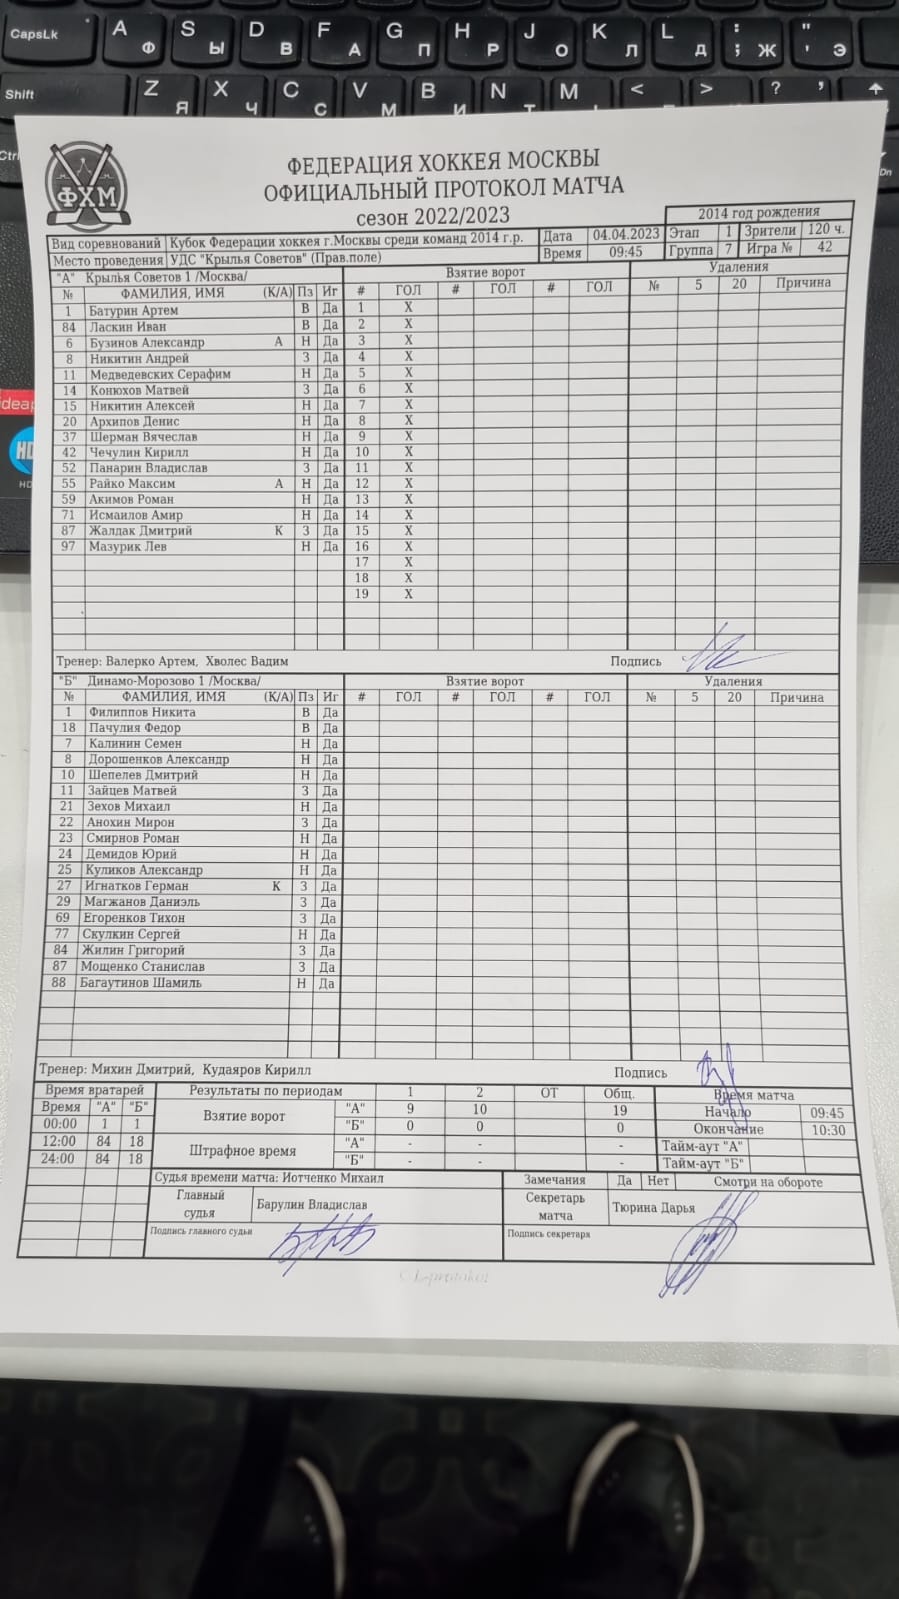 CapsLk A Ф S Ы D В F А G П H Р J О K Л L Д : ; Ж " ' Э
Shift Z Я X Ч C С V М B И N Т M < > ? ,
Ctrl
Dn
ФХМ
ФЕДЕРАЦИЯ ХОККЕЯ МОСКВЫ
ОФИЦИАЛЬНЫЙ ПРОТОКОЛ МАТЧА
сезон 2022/2023
2014 год рождения
Вид соревнований Кубок Федерации хоккея г.Москвы среди команд 2014 г.р. Дата 04.04.2023 Этап 1 Зрители 120 ч.
Место проведения УДС "Крылья Советов" (Прав.поле) Время 09:45 Группа 7 Игра № 42
"А" Крылья Советов 1 /Москва/ Взятие ворот Удаления
№ ФАМИЛИЯ, ИМЯ (К/А) Пз Иг # ГОЛ # ГОЛ # ГОЛ № 5 20 Причина
1 Батурин Артем В Да 1 X
84 Ласкин Иван В Да 2 X
6 Бузинов Александр А Н Да 3 X
8 Никитин Андрей З Да 4 X
11 Медведевских Серафим Н Да 5 X
14 Конюхов Матвей З Да 6 X
15 Никитин Алексей Н Да 7 X
20 Архипов Денис Н Да 8 X
37 Шерман Вячеслав Н Да 9 X
42 Чечулин Кирилл Н Да 10 X
52 Панарин Владислав З Да 11 X
55 Райко Максим А Н Да 12 X
59 Акимов Роман Н Да 13 X
71 Исмаилов Амир Н Да 14 X
87 Жалдак Дмитрий К З Да 15 X
97 Мазурик Лев Н Да 16 X
17 X
18 X
19 X
Тренер: Валерко Артем, Хволес Вадим Подпись
"Б" Динамо-Морозово 1 /Москва/ Взятие ворот Удаления
№ ФАМИЛИЯ, ИМЯ (К/А) Пз Иг # ГОЛ # ГОЛ # ГОЛ № 5 20 Причина
1 Филиппов Никита В Да
18 Пачулия Федор В Да
7 Калинин Семен Н Да
8 Дорошенков Александр Н Да
10 Шепелев Дмитрий Н Да
11 Зайцев Матвей З Да
21 Зехов Михаил Н Да
22 Анохин Мирон З Да
23 Смирнов Роман Н Да
24 Демидов Юрий Н Да
25 Куликов Александр Н Да
27 Игнатков Герман К З Да
29 Магжанов Даниэль З Да
69 Егоренков Тихон З Да
77 Скулкин Сергей Н Да
84 Жилин Григорий З Да
87 Мощенко Станислав З Да
88 Багаутинов Шамиль Н Да
Тренер: Михин Дмитрий, Кудаяров Кирилл Подпись
Время вратарей Результаты по периодам 1 2 ОТ Общ. Время матча
Время "А" "Б" Взятие ворот "А" 9 10 19 Начало 09:45
00:00 1 1 "Б" 0 0 0 Окончание 10:30
12:00 84 18 Штрафное время "А" - - - Тайм-аут "А"
24:00 84 18 "Б" - - - Тайм-аут "Б"
Судья времени матча: Иотченко Михаил Замечания Да Нет Смотри на обороте
Главный судья Барулин Владислав Секретарь матча Тюрина Дарья
Подпись главного судьи Подпись секретаря